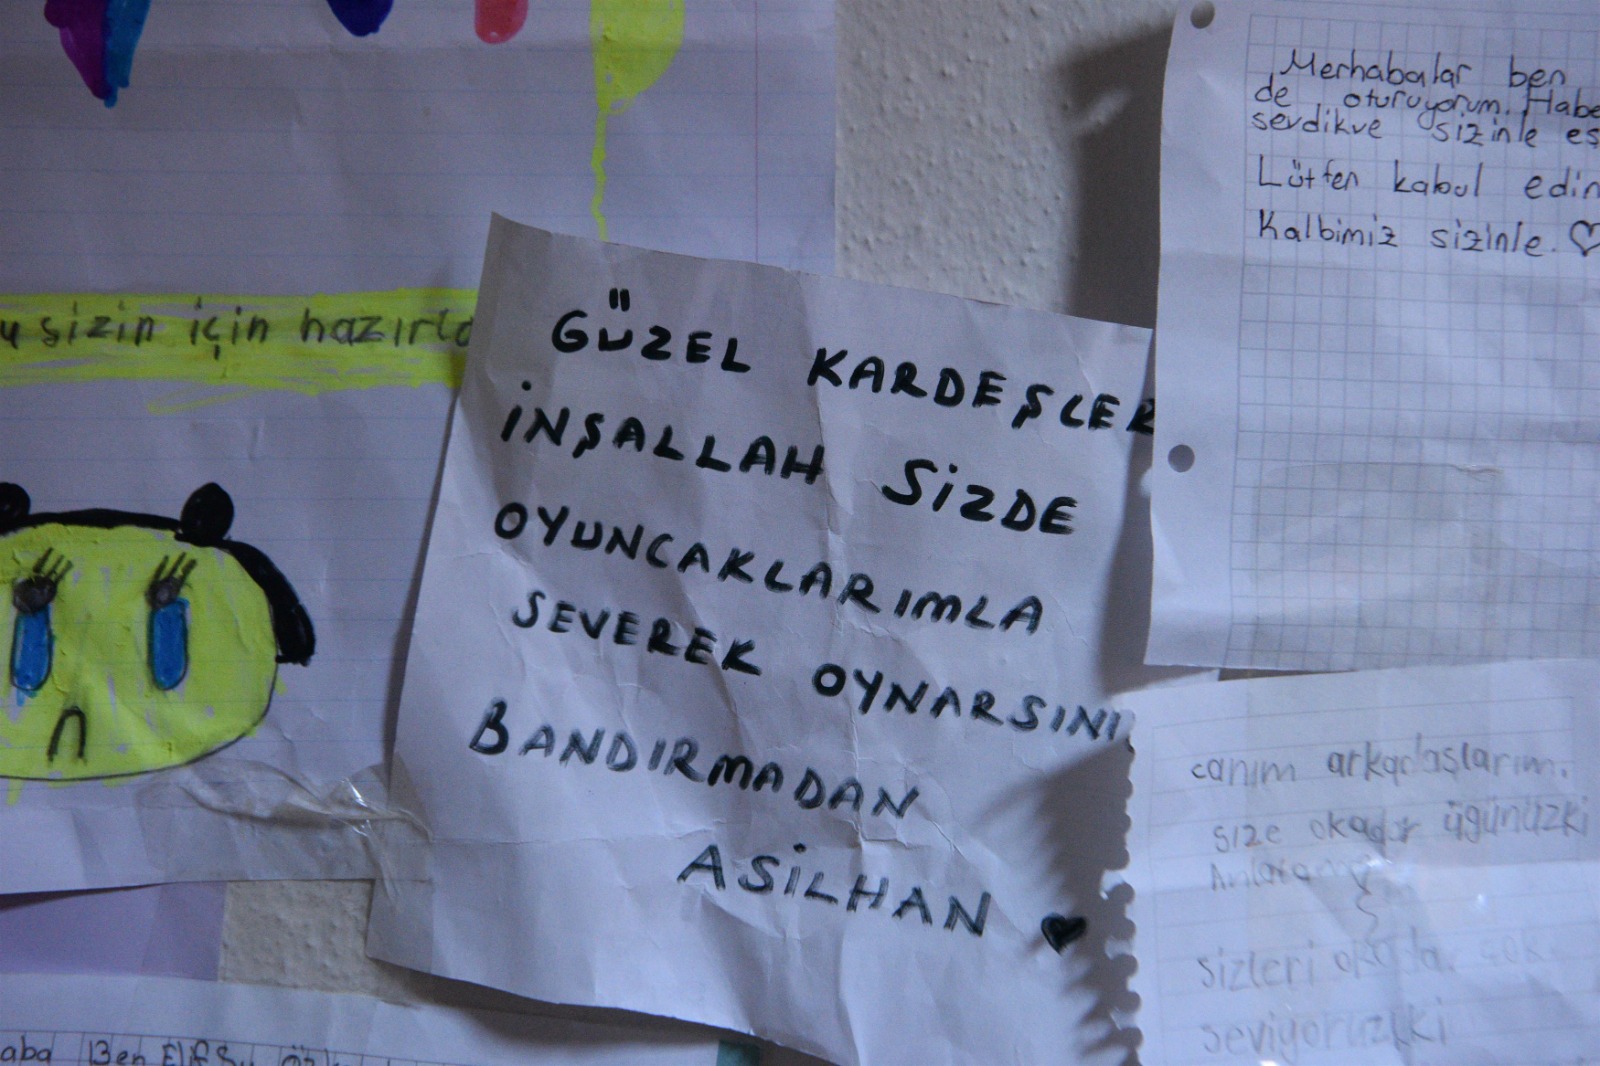 sizin için
GÜZEL KARDEŞLER
İNŞALLAH SİZDE
OYUNCAKLARIMLA
SEVEREK OYNARSINI
BANDIRMADAN
ASİLHAN ♥
Merhabalar ben
de oturuyorum. Habe
sevdikve sizinle eş
Lütfen kabul edin
Kalbimiz sizinle. ♡
canım arkadaşlarım.
size okadar üğünüzki
sizleri okadar çok
seviyoruzki
aba Ben Elif Su